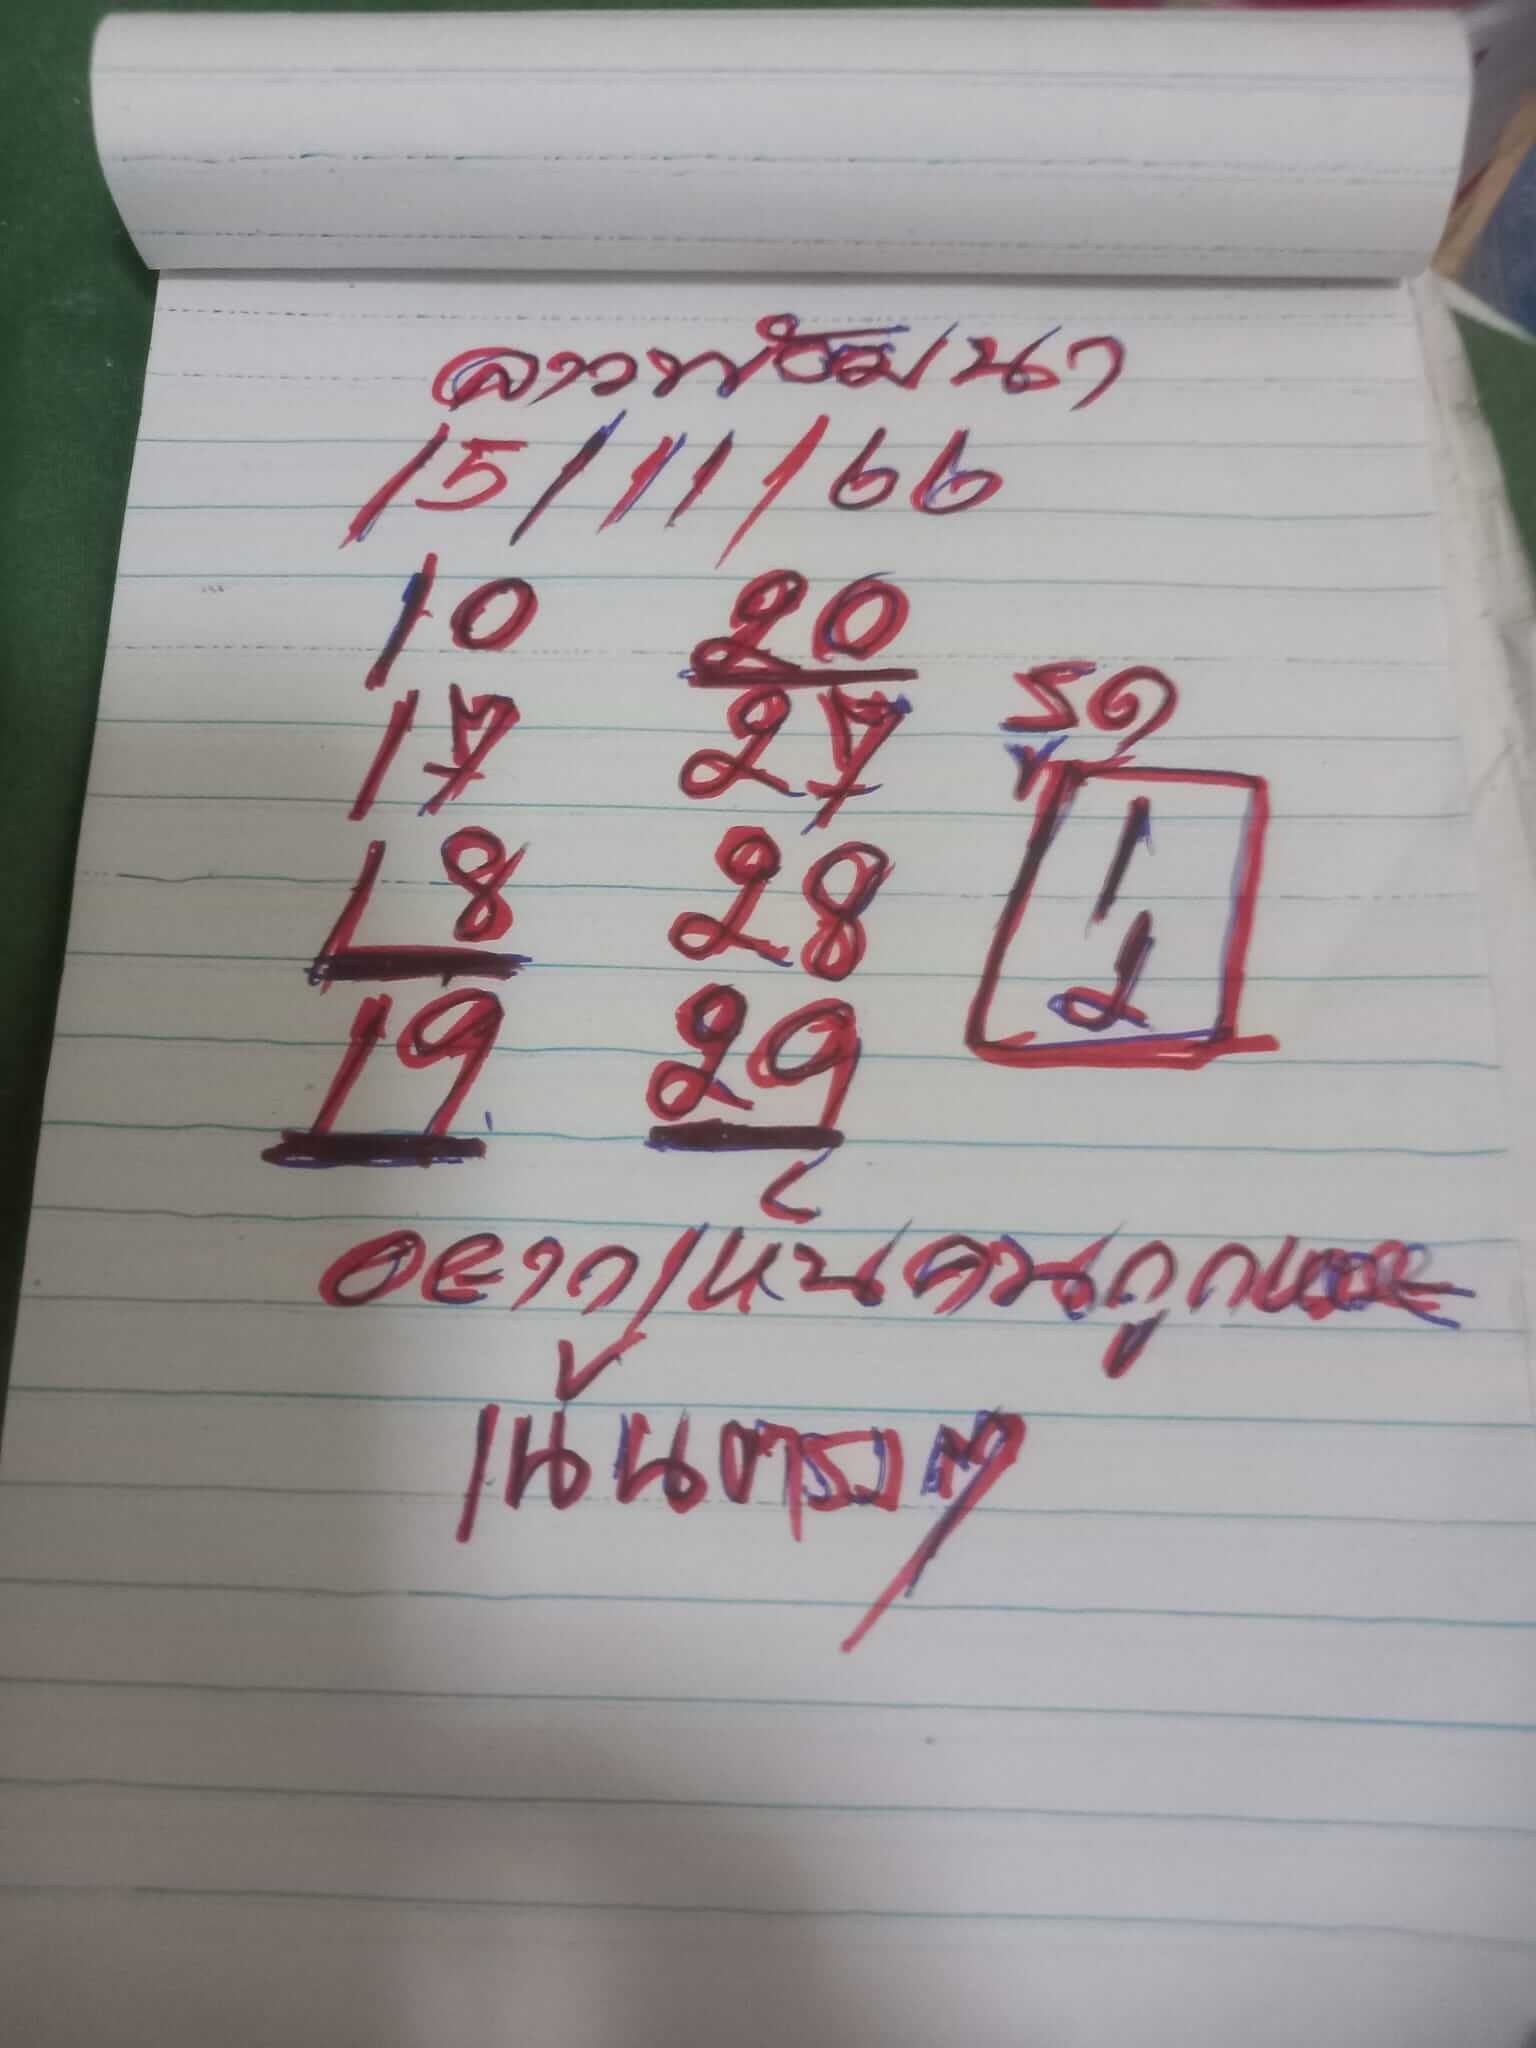 ลาวพัฒนา
15/11/66
10 20
รูด
17 27
1
18 28
2
19 29
อยากเห็นคนถูกเยอะ
เน้นตรงๆ